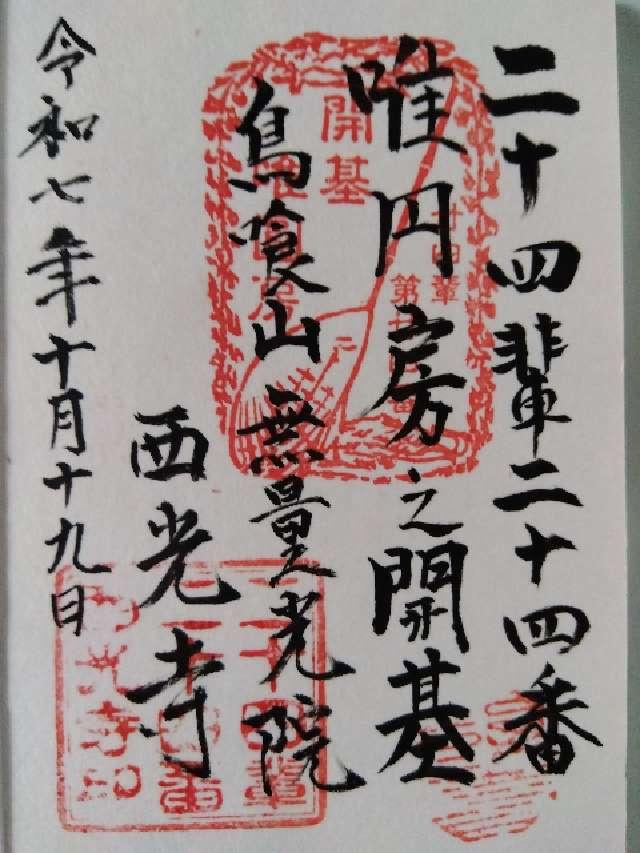 二十四輩二十四番
唯円房之開基
鳥喰山無量光院
西光寺
令和七年十月十九日
開基
廿四輩
第廿